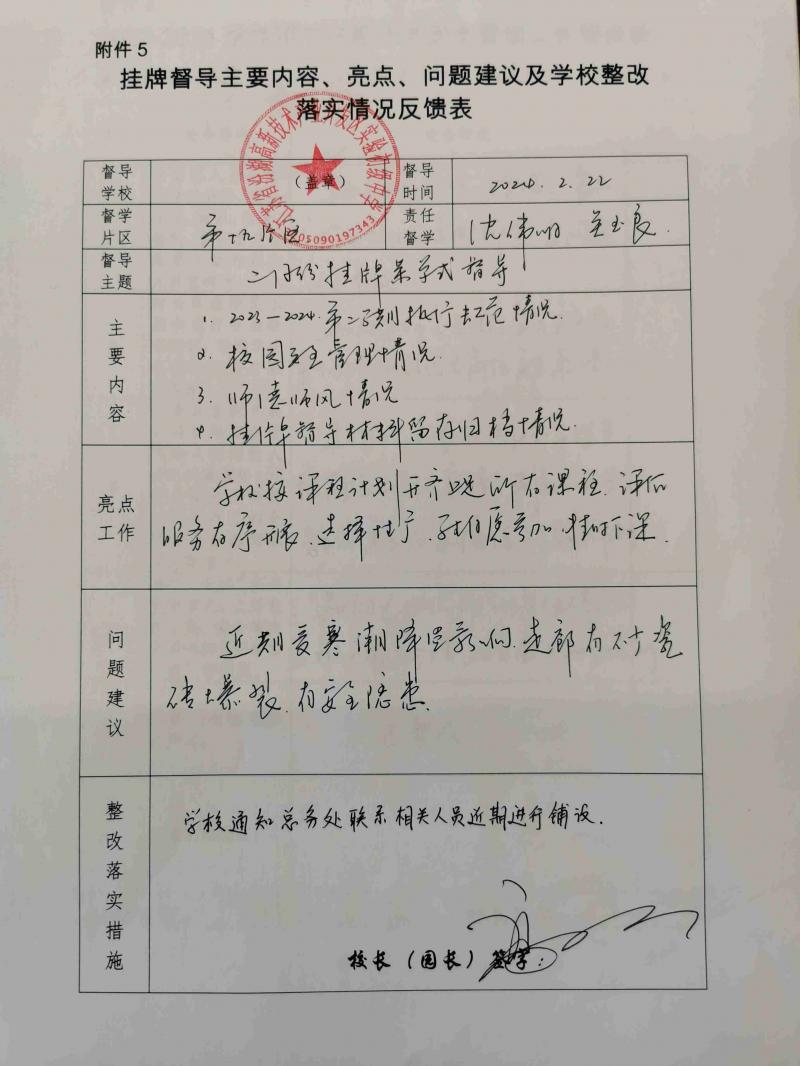 附件 5
挂牌督导主要内容、亮点、问题建议及学校整改
落实情况反馈表
督导
学校
（盖章）
督导
时间
2024.2.22
督学
片区
第十九片区
责任
督学
沈伟明
督导
主题
二月份挂牌督学式指导
主要内容
1. 2023—2024第二学期执行规范情况.
2. 校园安全管理情况.
3. 师德师风情况
4. 挂牌督导材料留存归档情况.
亮点
工作
学校按课程计划开齐开足所有课程.课后
服务有序开展.选择性广,学生自愿参加.
问题建议
近期受寒潮降温影响.走廊有不少瓷
砖爆裂.有安全隐患.
整改落实措施
学校通知总务处联系相关人员近期进行铺设.
校长（园长）签字:
05090197343